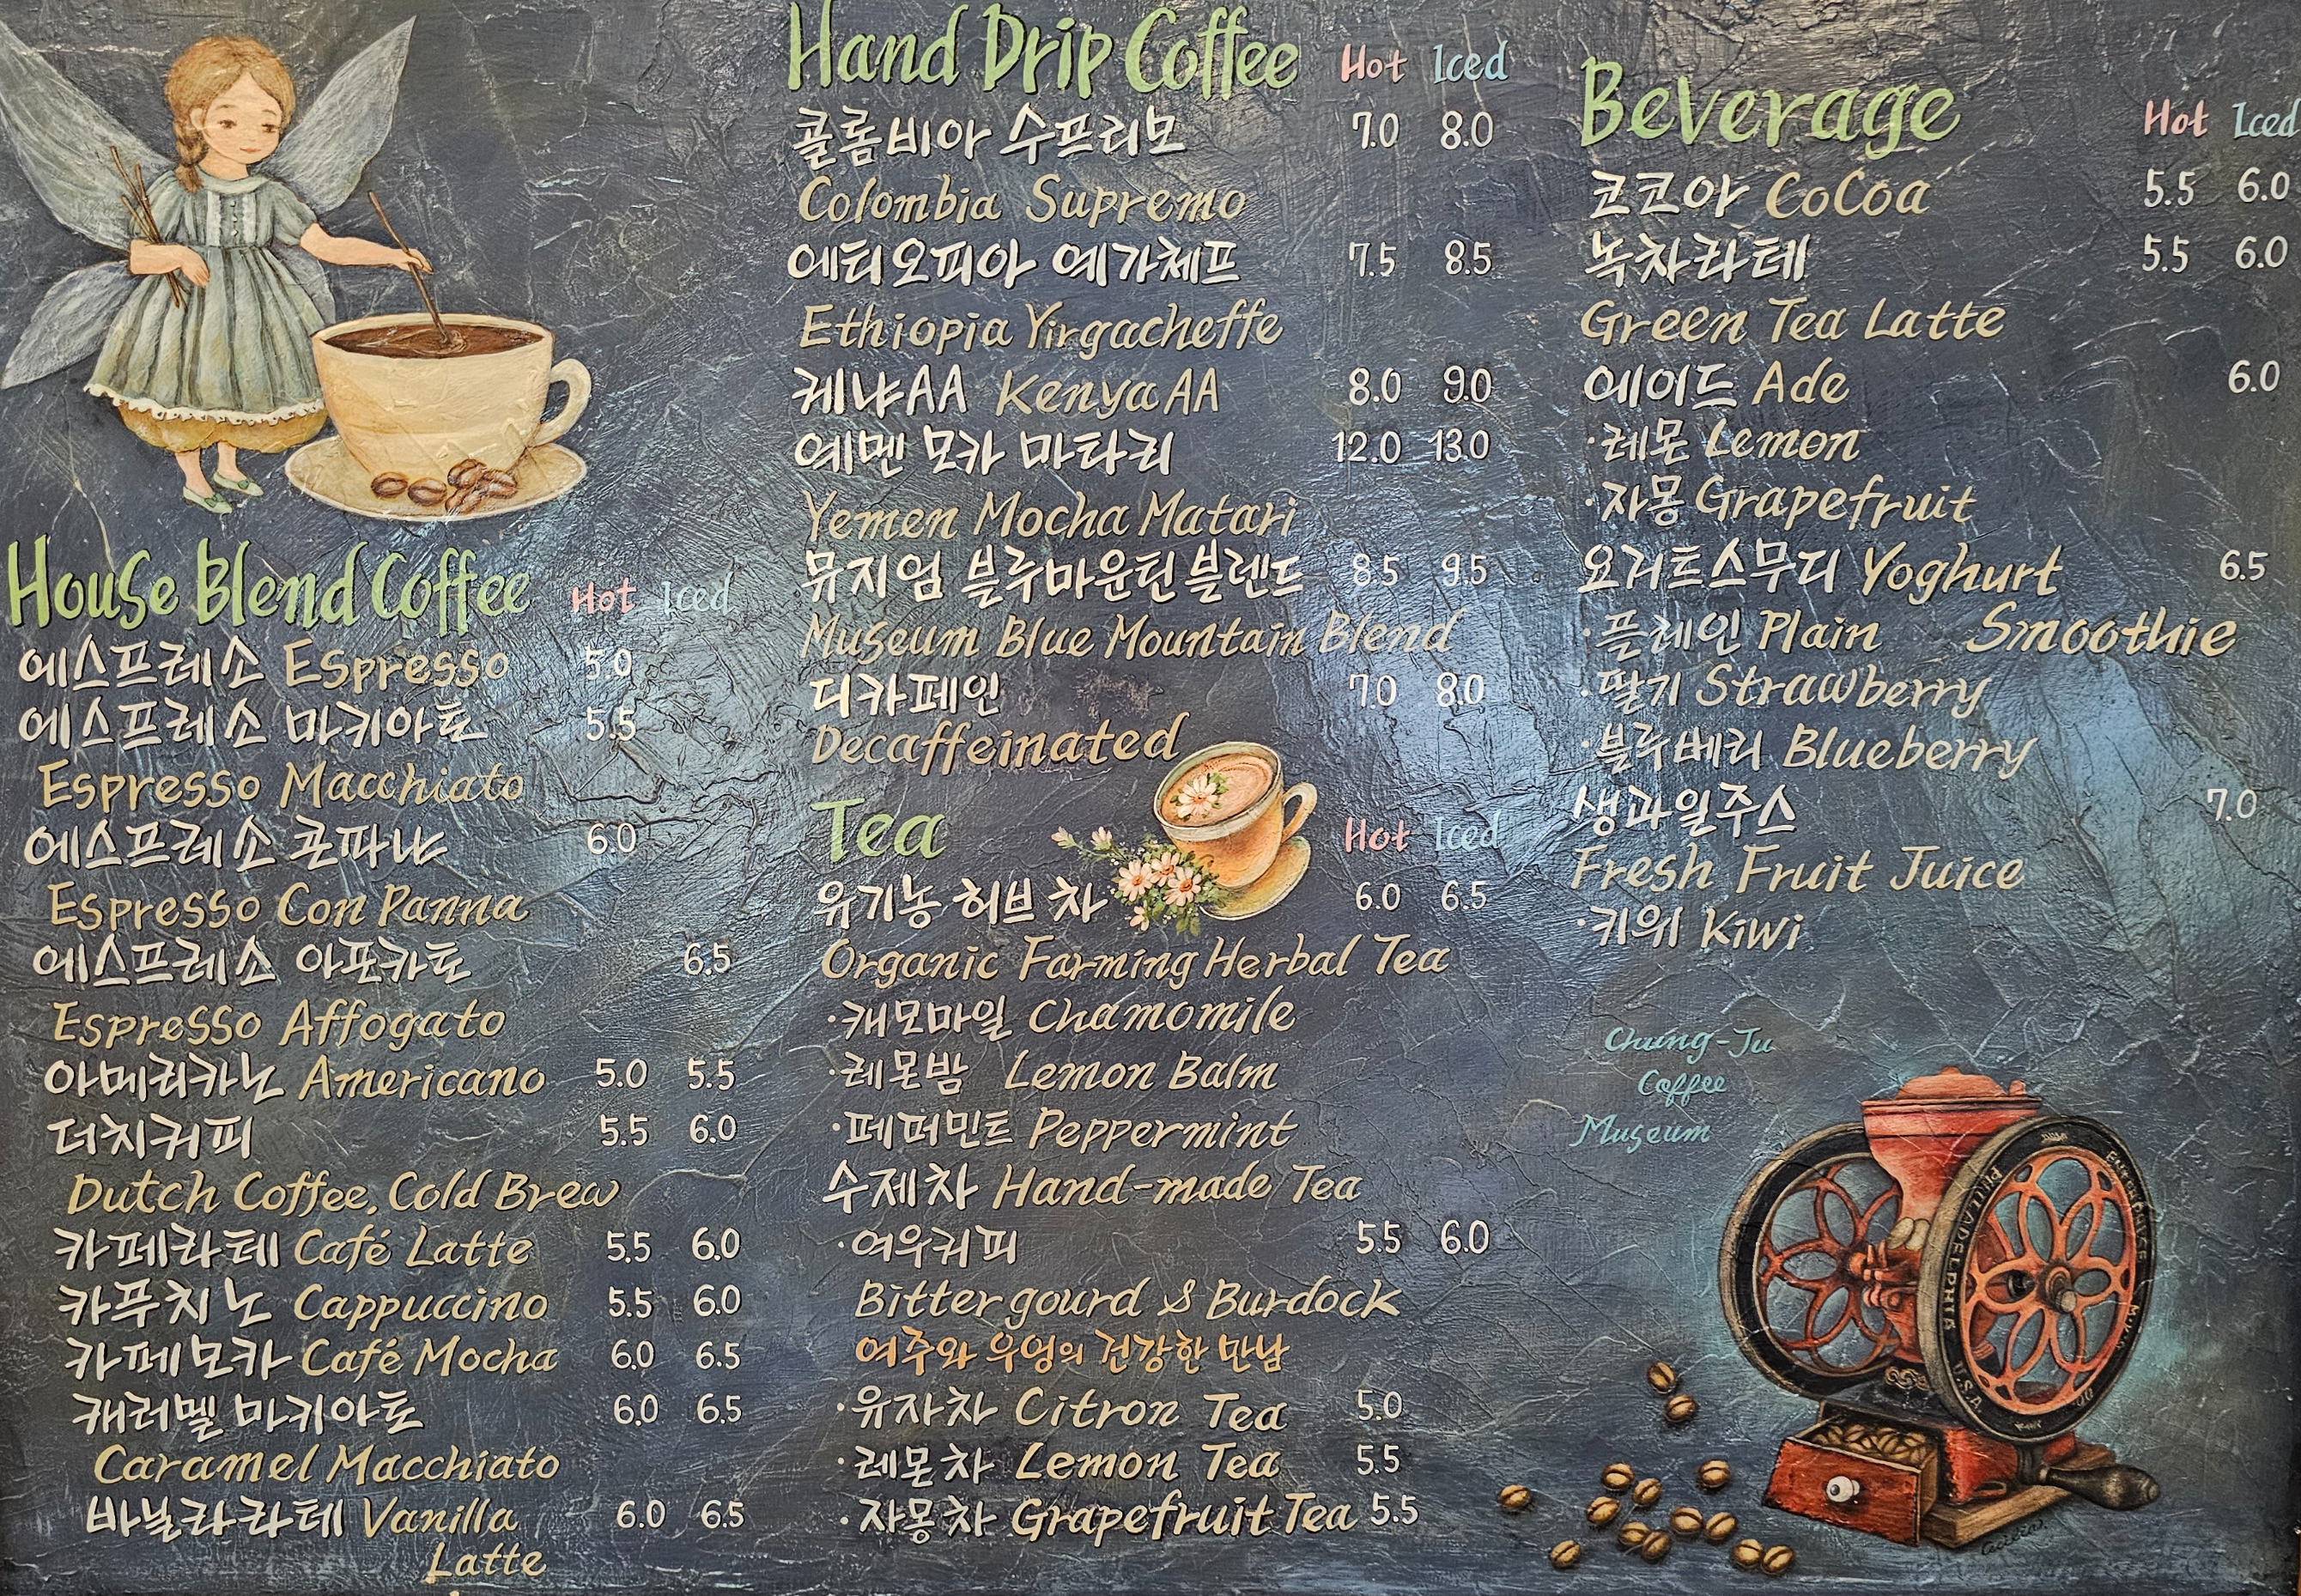 House Blend Coffee Hot Iced
에스프레소 Espresso 5.0
에스프레소 마키아토 5.5
Espresso Macchiato
에스프레소 콘파냐 6.0
Espresso Con Panna
에스프레소 아포카토 6.5
Espresso Affogato
아메리카노 Americano 5.0 5.5
더치커피 5.5 6.0
Dutch Coffee, Cold Brew
카페라테 Café Latte 5.5 6.0
카푸치노 Cappuccino 5.5 6.0
카페모카 Café Mocha 6.0 6.5
캐러멜 마키아토 6.0 6.5
Caramel Macchiato
바닐라라테 Vanilla 6.0 6.5
Latte
Hand Drip Coffee Hot Iced
콜롬비아 수프리모 7.0 8.0
Colombia Supremo
에티오피아 예가체프 7.5 8.5
Ethiopia Yirgacheffe
케냐AA Kenya AA 8.0 9.0
예멘 모카 마타리 12.0 13.0
Yemen Mocha Matari
뮤지엄 블루마운틴블렌드 8.5 9.5
Museum Blue Mountain Blend
디카페인 7.0 8.0
Decaffeinated
Tea Hot Iced
유기농 허브 차 6.0 6.5
Organic Farming Herbal Tea
·캐모마일 Chamomile
·레몬밤 Lemon Balm
·페퍼민트 Peppermint
수제차 Hand-made Tea
·여우커피 5.5 6.0
Bitter gourd & Burdock
여주와 우엉의 건강한 만남
·유자차 Citron Tea 5.0
·레몬차 Lemon Tea 5.5
·자몽차 Grapefruit Tea 5.5
Beverage Hot Iced
코코아 CoCoa 5.5 6.0
녹차라테 5.5 6.0
Green Tea Latte
에이드 Ade 6.0
·레몬 Lemon
·자몽 Grapefruit
요거트스무디 Yoghurt 6.5
Smoothie
·플레인 Plain
·딸기 Strawberry
·블루베리 Blueberry
생과일주스 7.0
Fresh Fruit Juice
·키위 Kiwi
Chung-Ju
Coffee
Museum
PHILADELPHIA
U.S.A.